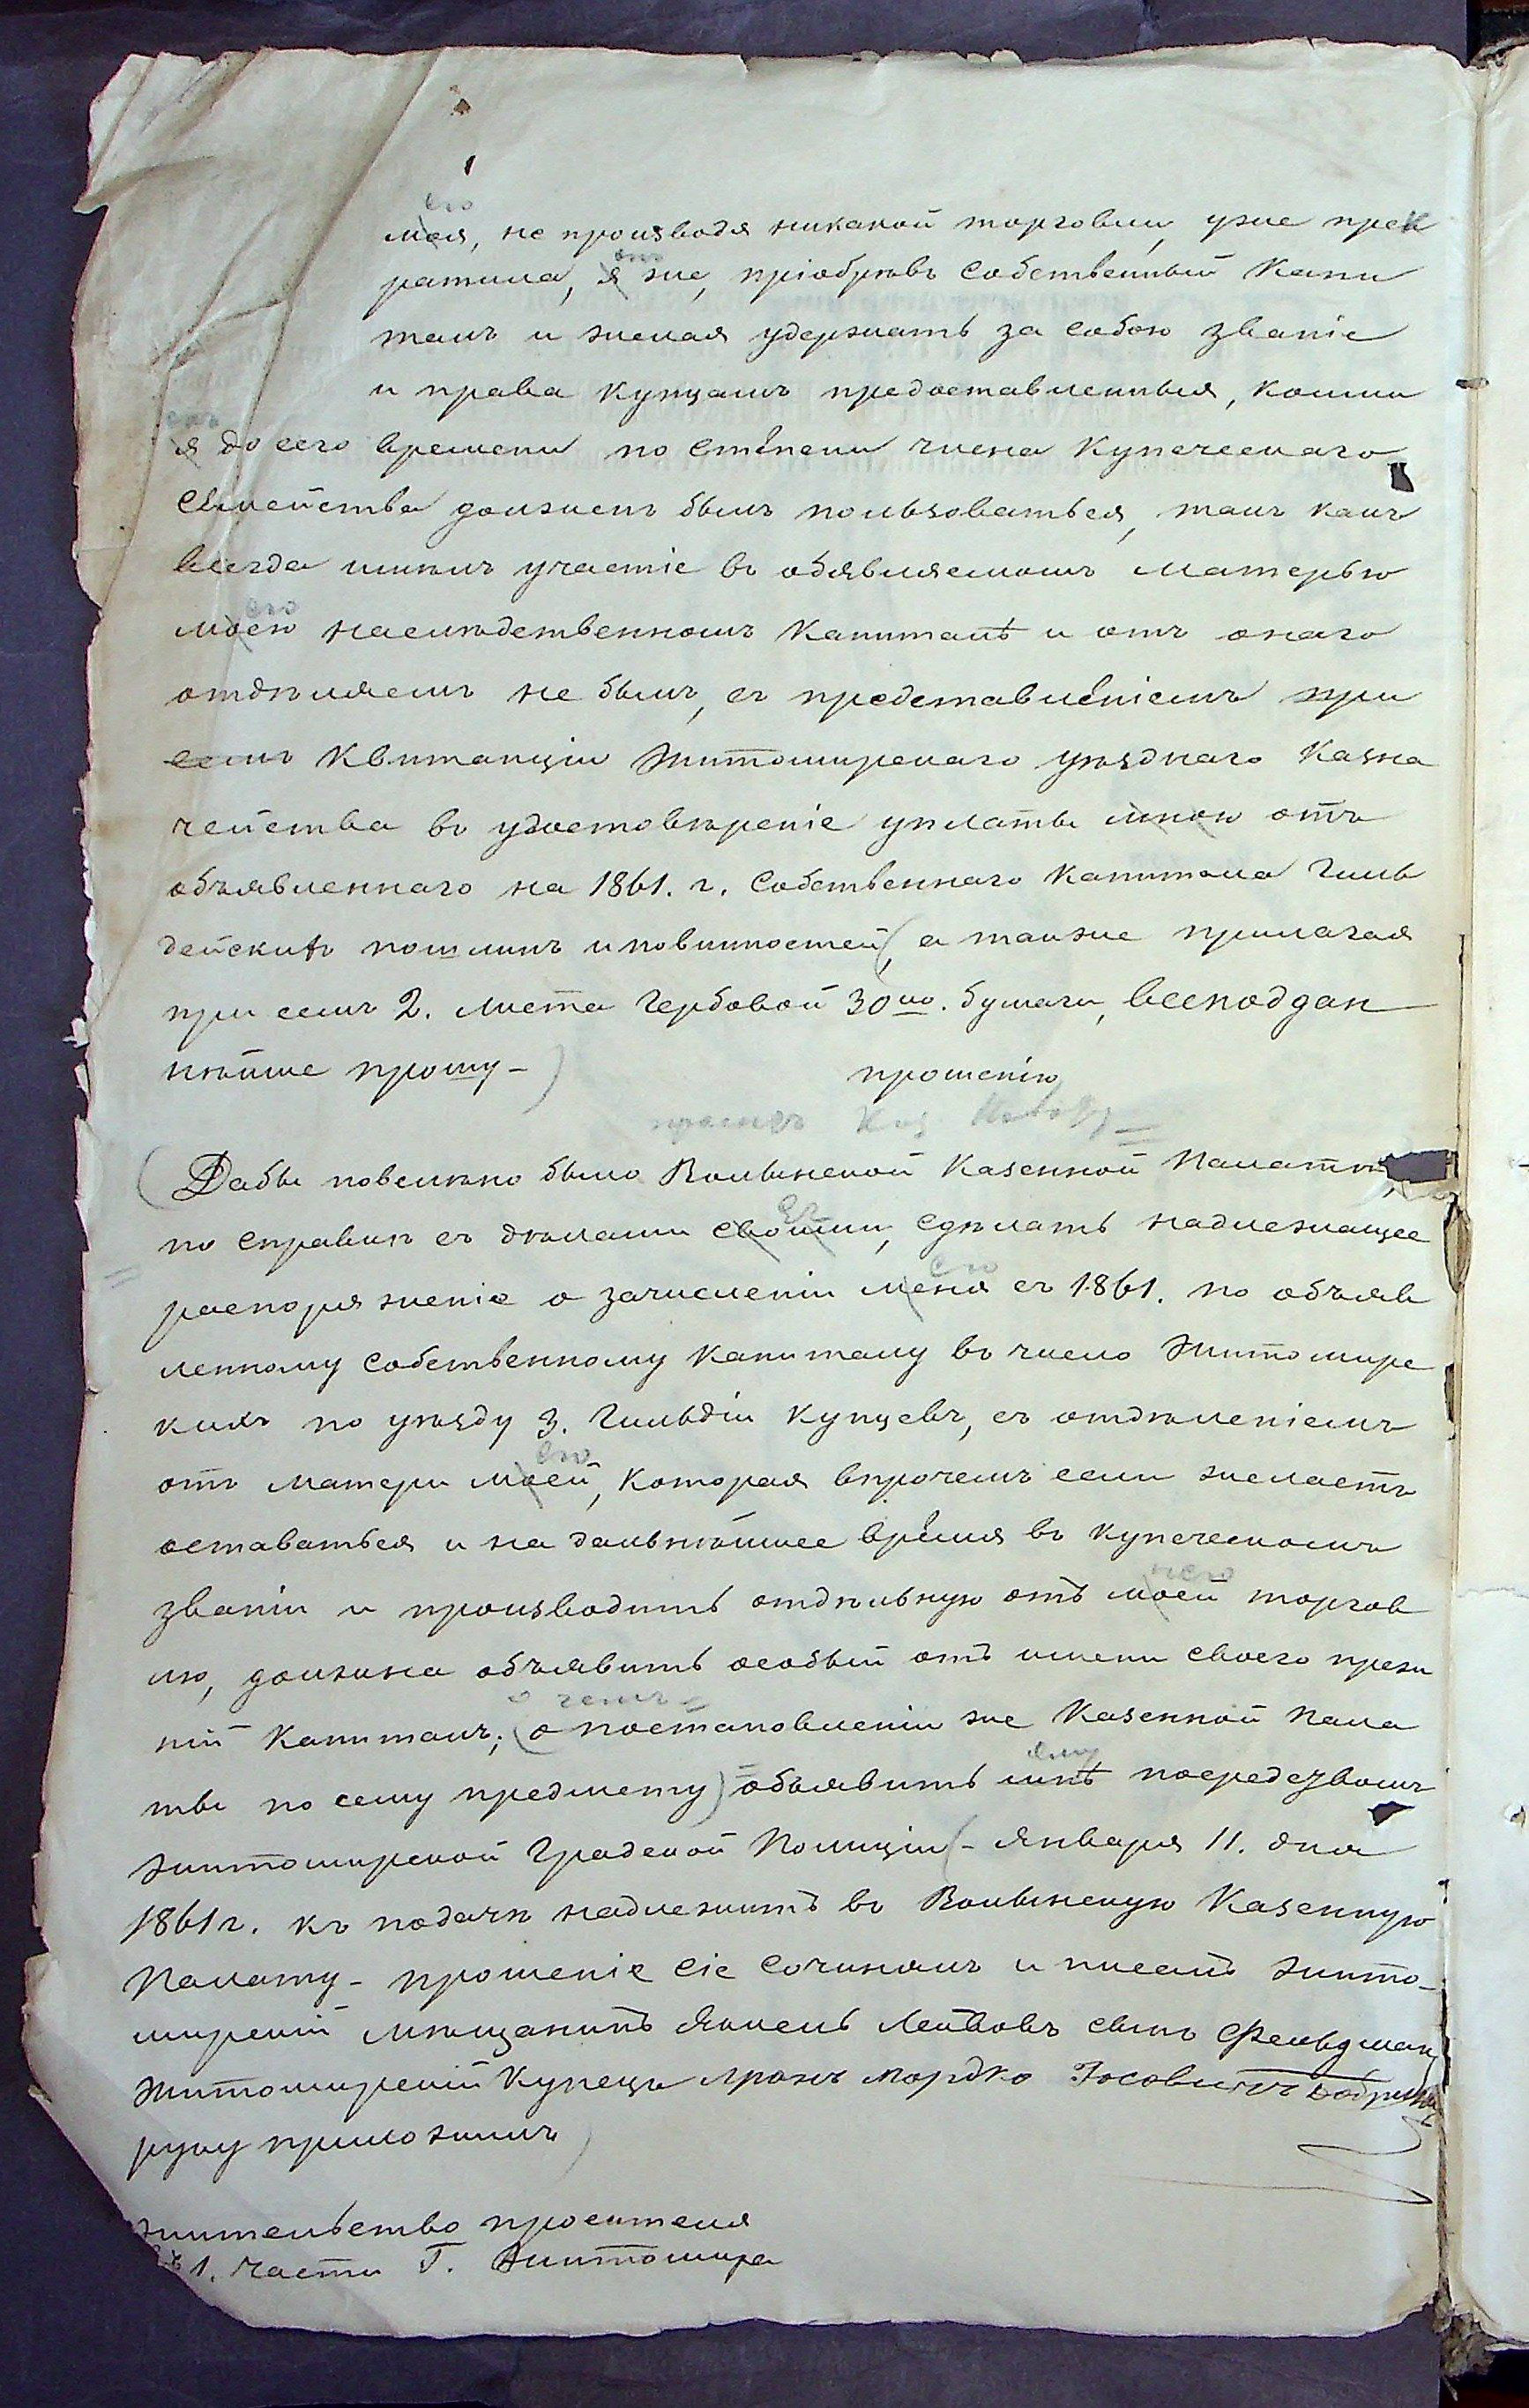 его
моя, не производя никакой торговли, уже прек
онъ
ратила, я же, пріобрѣвъ собственный Капи
талъ и желая удержать за собою званіе
и права купцамъ предоставленныя, коими
онъ
я до сего времени по степени члена Купеческаго
Семейства долженъ былъ пользоваться, такъ какъ
всегда имѣлъ участіе въ объявляемомъ матерью
его
моею наслѣдственномъ Капиталѣ и отъ онаго
отдѣляемъ не былъ, съ представленіемъ при
семъ Квитанціи Житомирскаго уѣзднаго Казна
чейства въ удостовѣреніе уплаты мною отъ
объявленнаго на 1861. г. Собственнаго Капитала Гиль
дейскихъ пошлинъ и повинностей (, а также прилагая
при семъ 2. листа Гербовой 30 ко. бумаги, всеподдан
нѣйше прошу - ) прошенію
проситъ Каз.
(Дабы повелѣно было Волынской Казенной Палатѣ,
ея
по справкѣ съ дѣлами своими, сдѣлать надлежащее
его
распоряженіе о зачисленіи меня съ 1861. по объяв
ленному Собственному Капиталу въ число Житомирс
кихъ по уѣзду 3. Гильдіи Купцевъ, съ отдѣленіемъ
его
отъ матери моей, которая впрочемъ если желаетъ
оставаться и на дальнѣйшее время въ купеческомъ
него
званіи и производить отдѣльную отъ моей торгов
лю, должна объявить особый отъ имени своего преж
о чемъ
ній Капиталъ; (о постановленіи же Казенной Пала
ему
ты по сему предмету) объявить мнѣ посредством
Житомирской Градской Полиціи (- Января 11. дня
1861 г. къ подачѣ надлежитъ въ Волынскую Казенную
Палату - прошеніе сіе сочинялъ и писалъ Жито-
мирскій мѣщанинъ Янкель Лейбовъ сынъ Фельдман
Житомирскій Купецъ Аронъ Мордко Іосовичъ
руку приложилъ)
жительство просителя
въ 1. части Г. Житомира